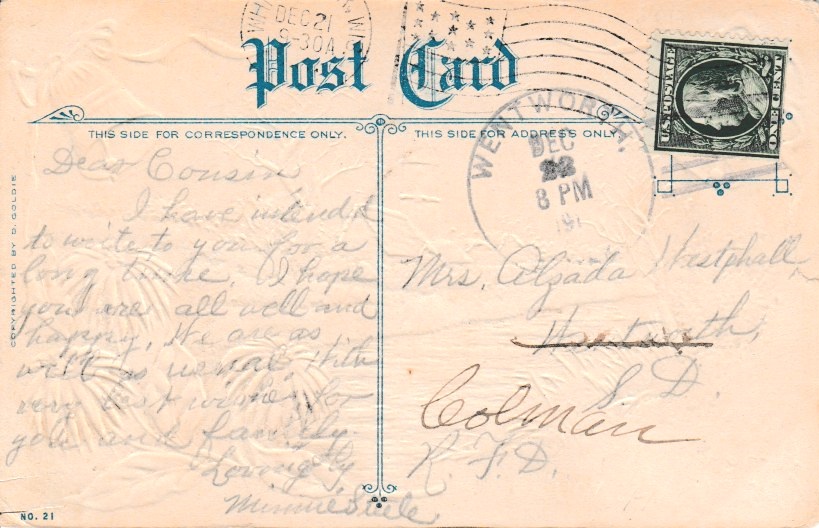 DEC 21
8-30A
Post Card
UNITED STATES
ONE CENT
THIS SIDE FOR CORRESPONDENCE ONLY.
THIS SIDE FOR ADDRESS ONLY.
WENTWORTH,
DEC
22
8 PM
191
COPYRIGHTED BY S. GOLDIE
Dear Cousin
I have intended
to write to you for a
long time. I hope
you are all well and
happy. We are as
well as usual. With
very best wishes for
you and family.
Lovingly,
Minnie Steele
Mrs. Alzada Westphall
Wentworth,
S. D.
Colman
R. F. D.
NO. 21